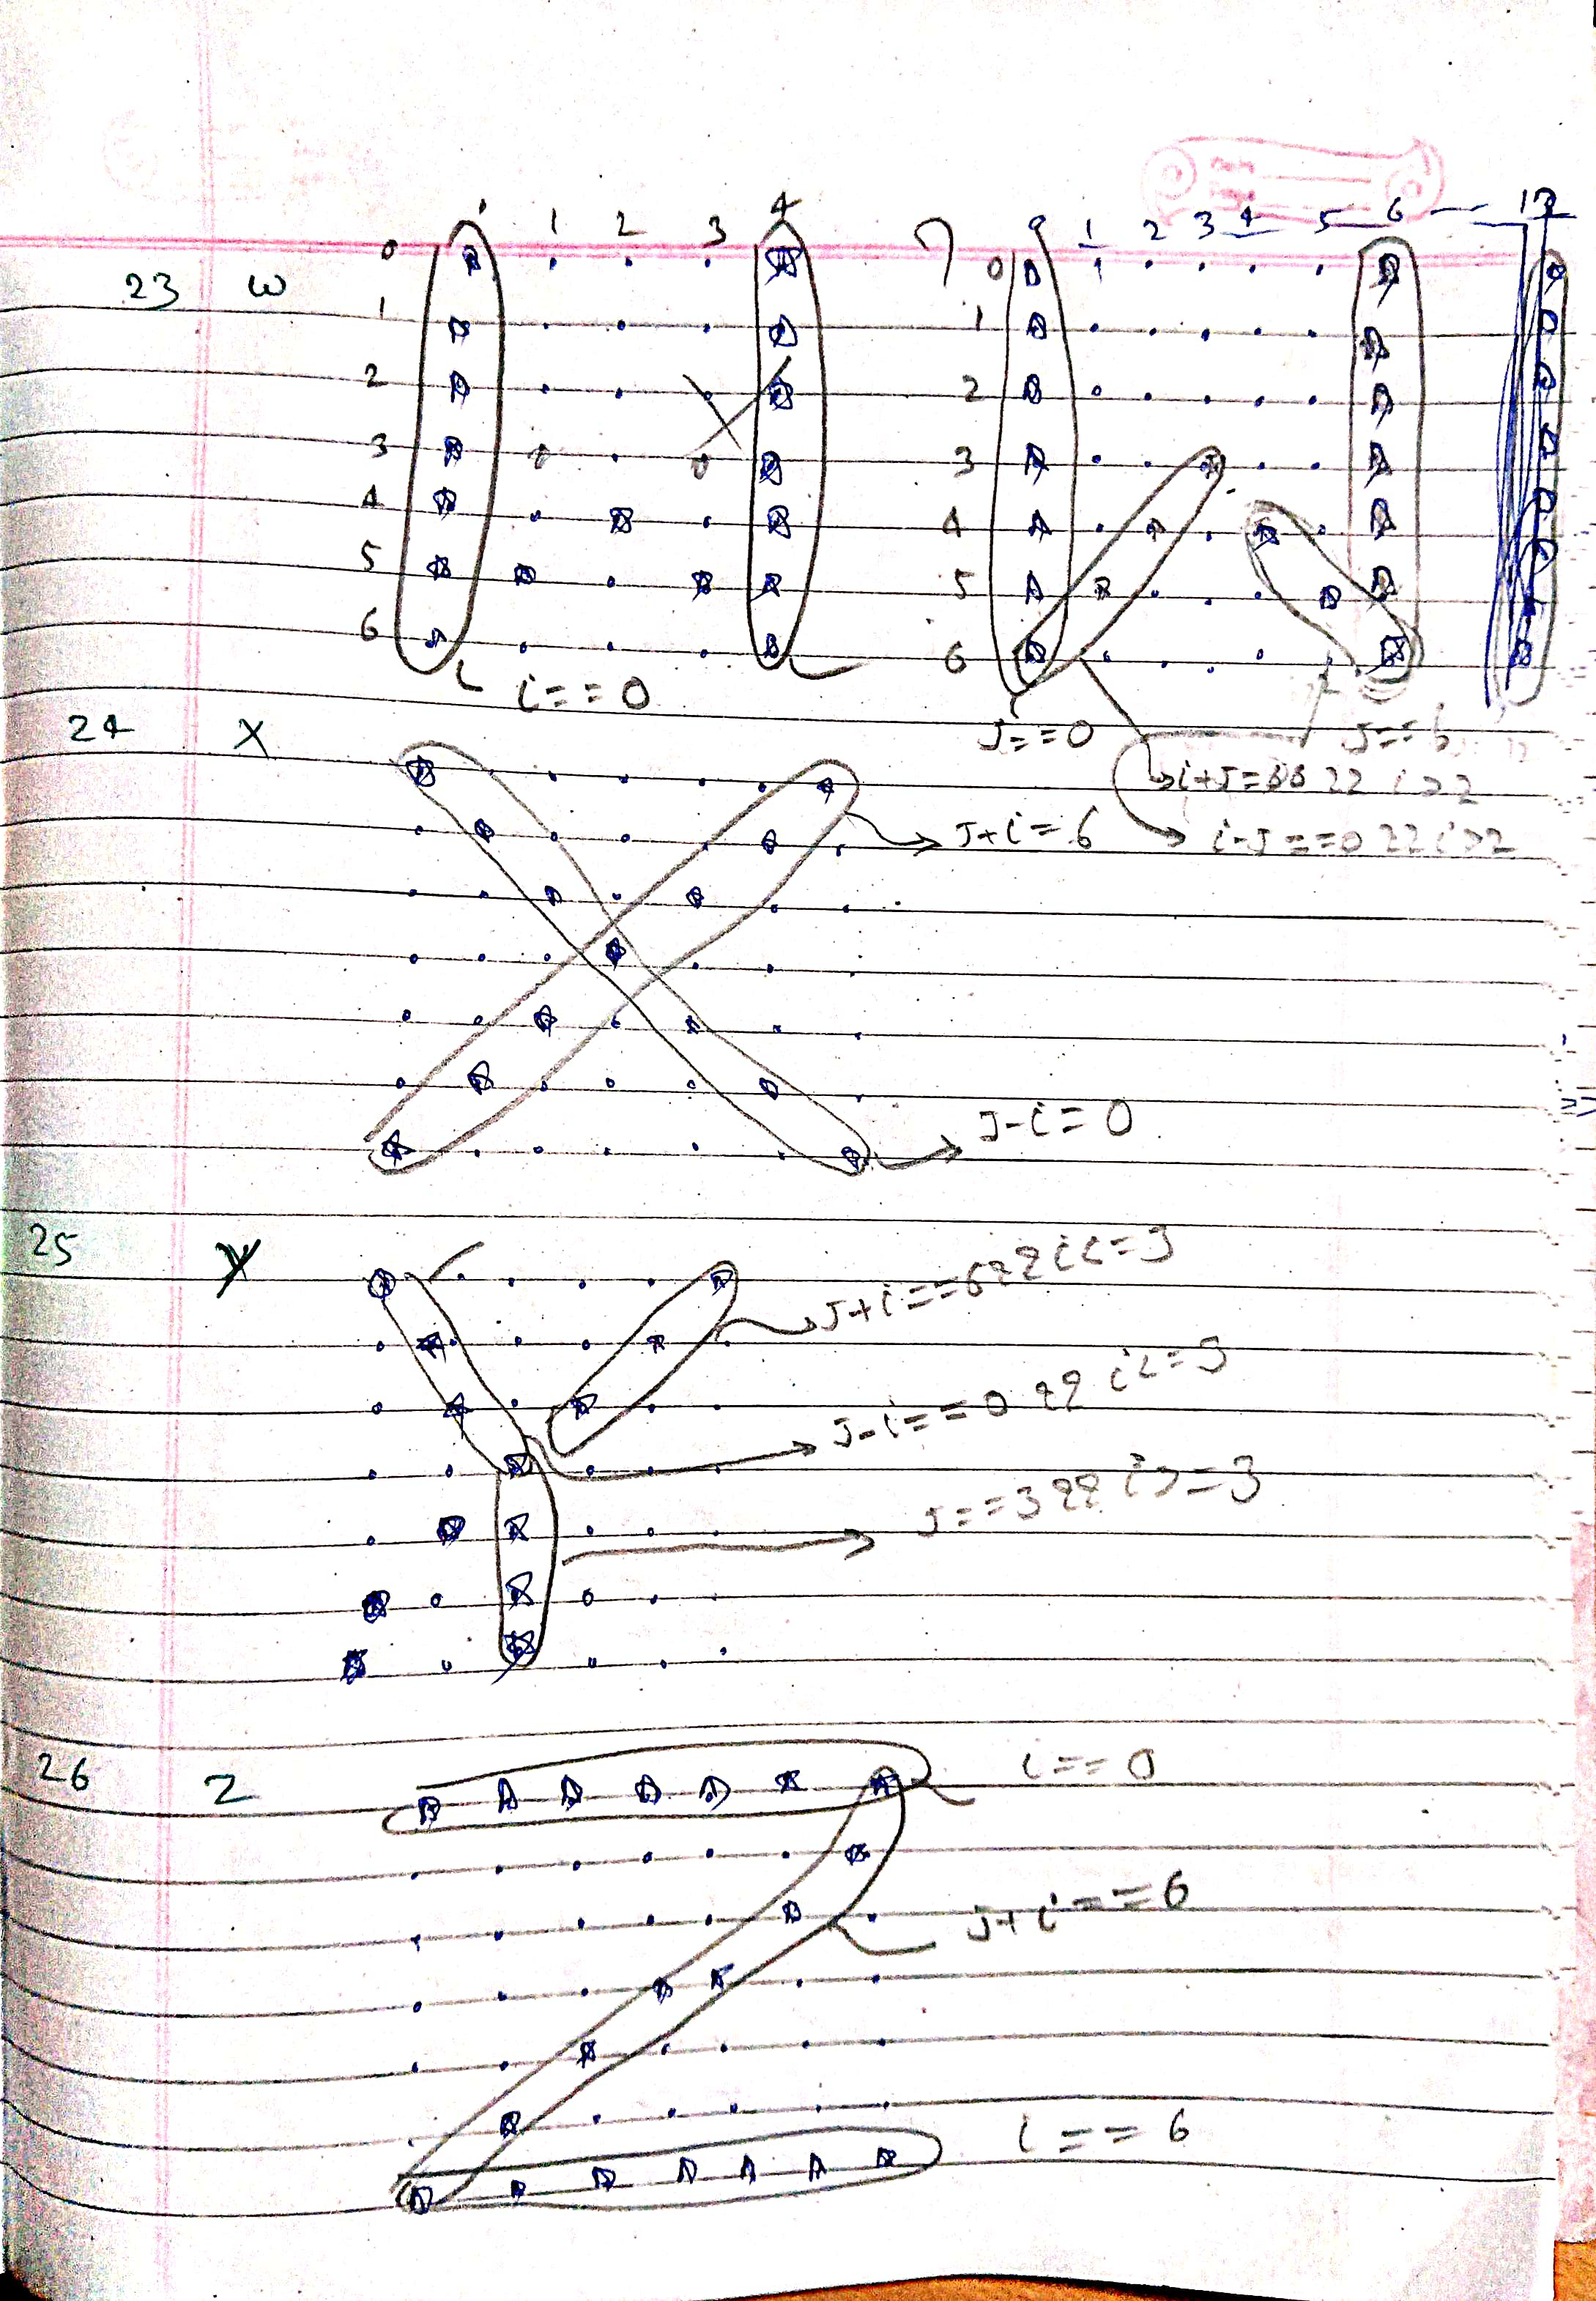 1 2 3 4
0 1 2 3 4 5 6 12
23 W
0
1
2
3
4
5
6
0
1
2
3
4
5
6
i==0
J==0
J==6
i+J= && i>2
i-J==0 && i>2
24 X
J+i=6
J-i=0
25 Y
J+i==6&&i<=3
J-i==0 && i<=3
J==3&&i>=3
26 Z
i==0
J+i==6
i==6